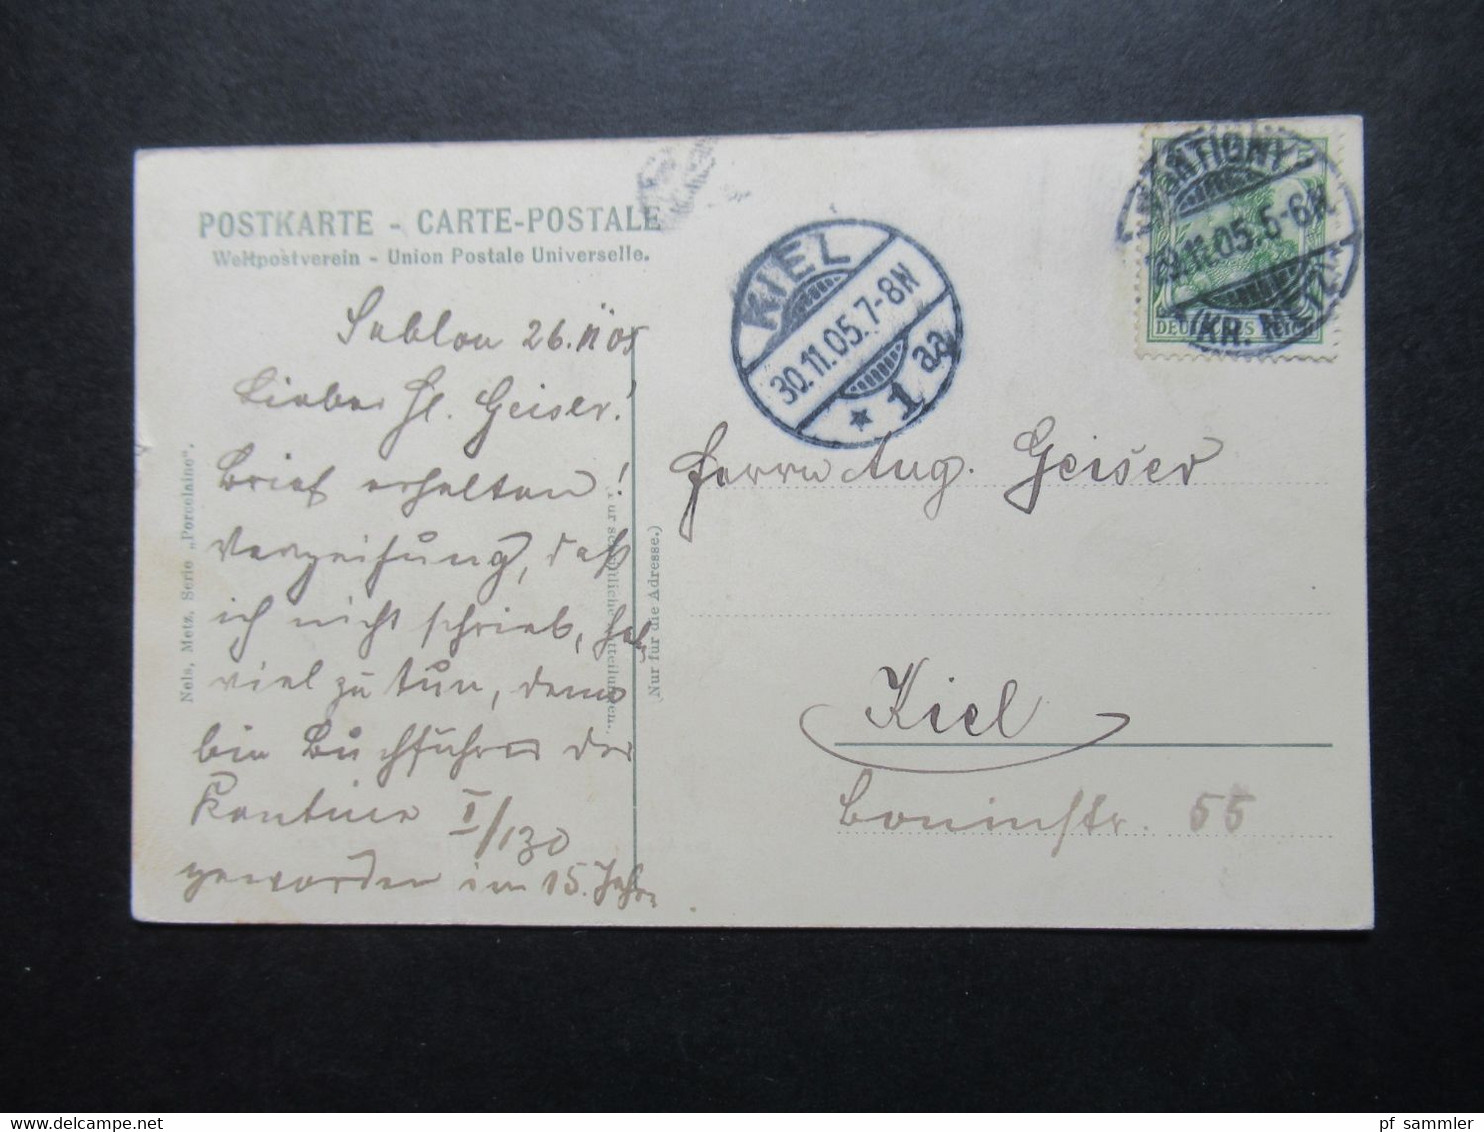 POSTKARTE - CARTE-POSTALE
Weltpostverein - Union Postale Universelle.
Sablon 26.11 05
Lieber Hl. Geiser!
Brief erhalten!
Verzeihung, daß
ich nicht schrieb, hab
viel zu tun, denn
bin Buchführer der
Kantine I/130
geworden im 15. Jahr
Nels, Metz. Serie „Porcelaine".
(Nur für die Adresse.)
KIEL
30.11.05.7-8N
* 1 aa
MONTIGNY
29.11.05.5-6N
(KR. METZ)
DEUTSCHES REICH
Herrn Aug. Geiser
Kiel
Boninstr. 55
pf sammler
delcampe.net